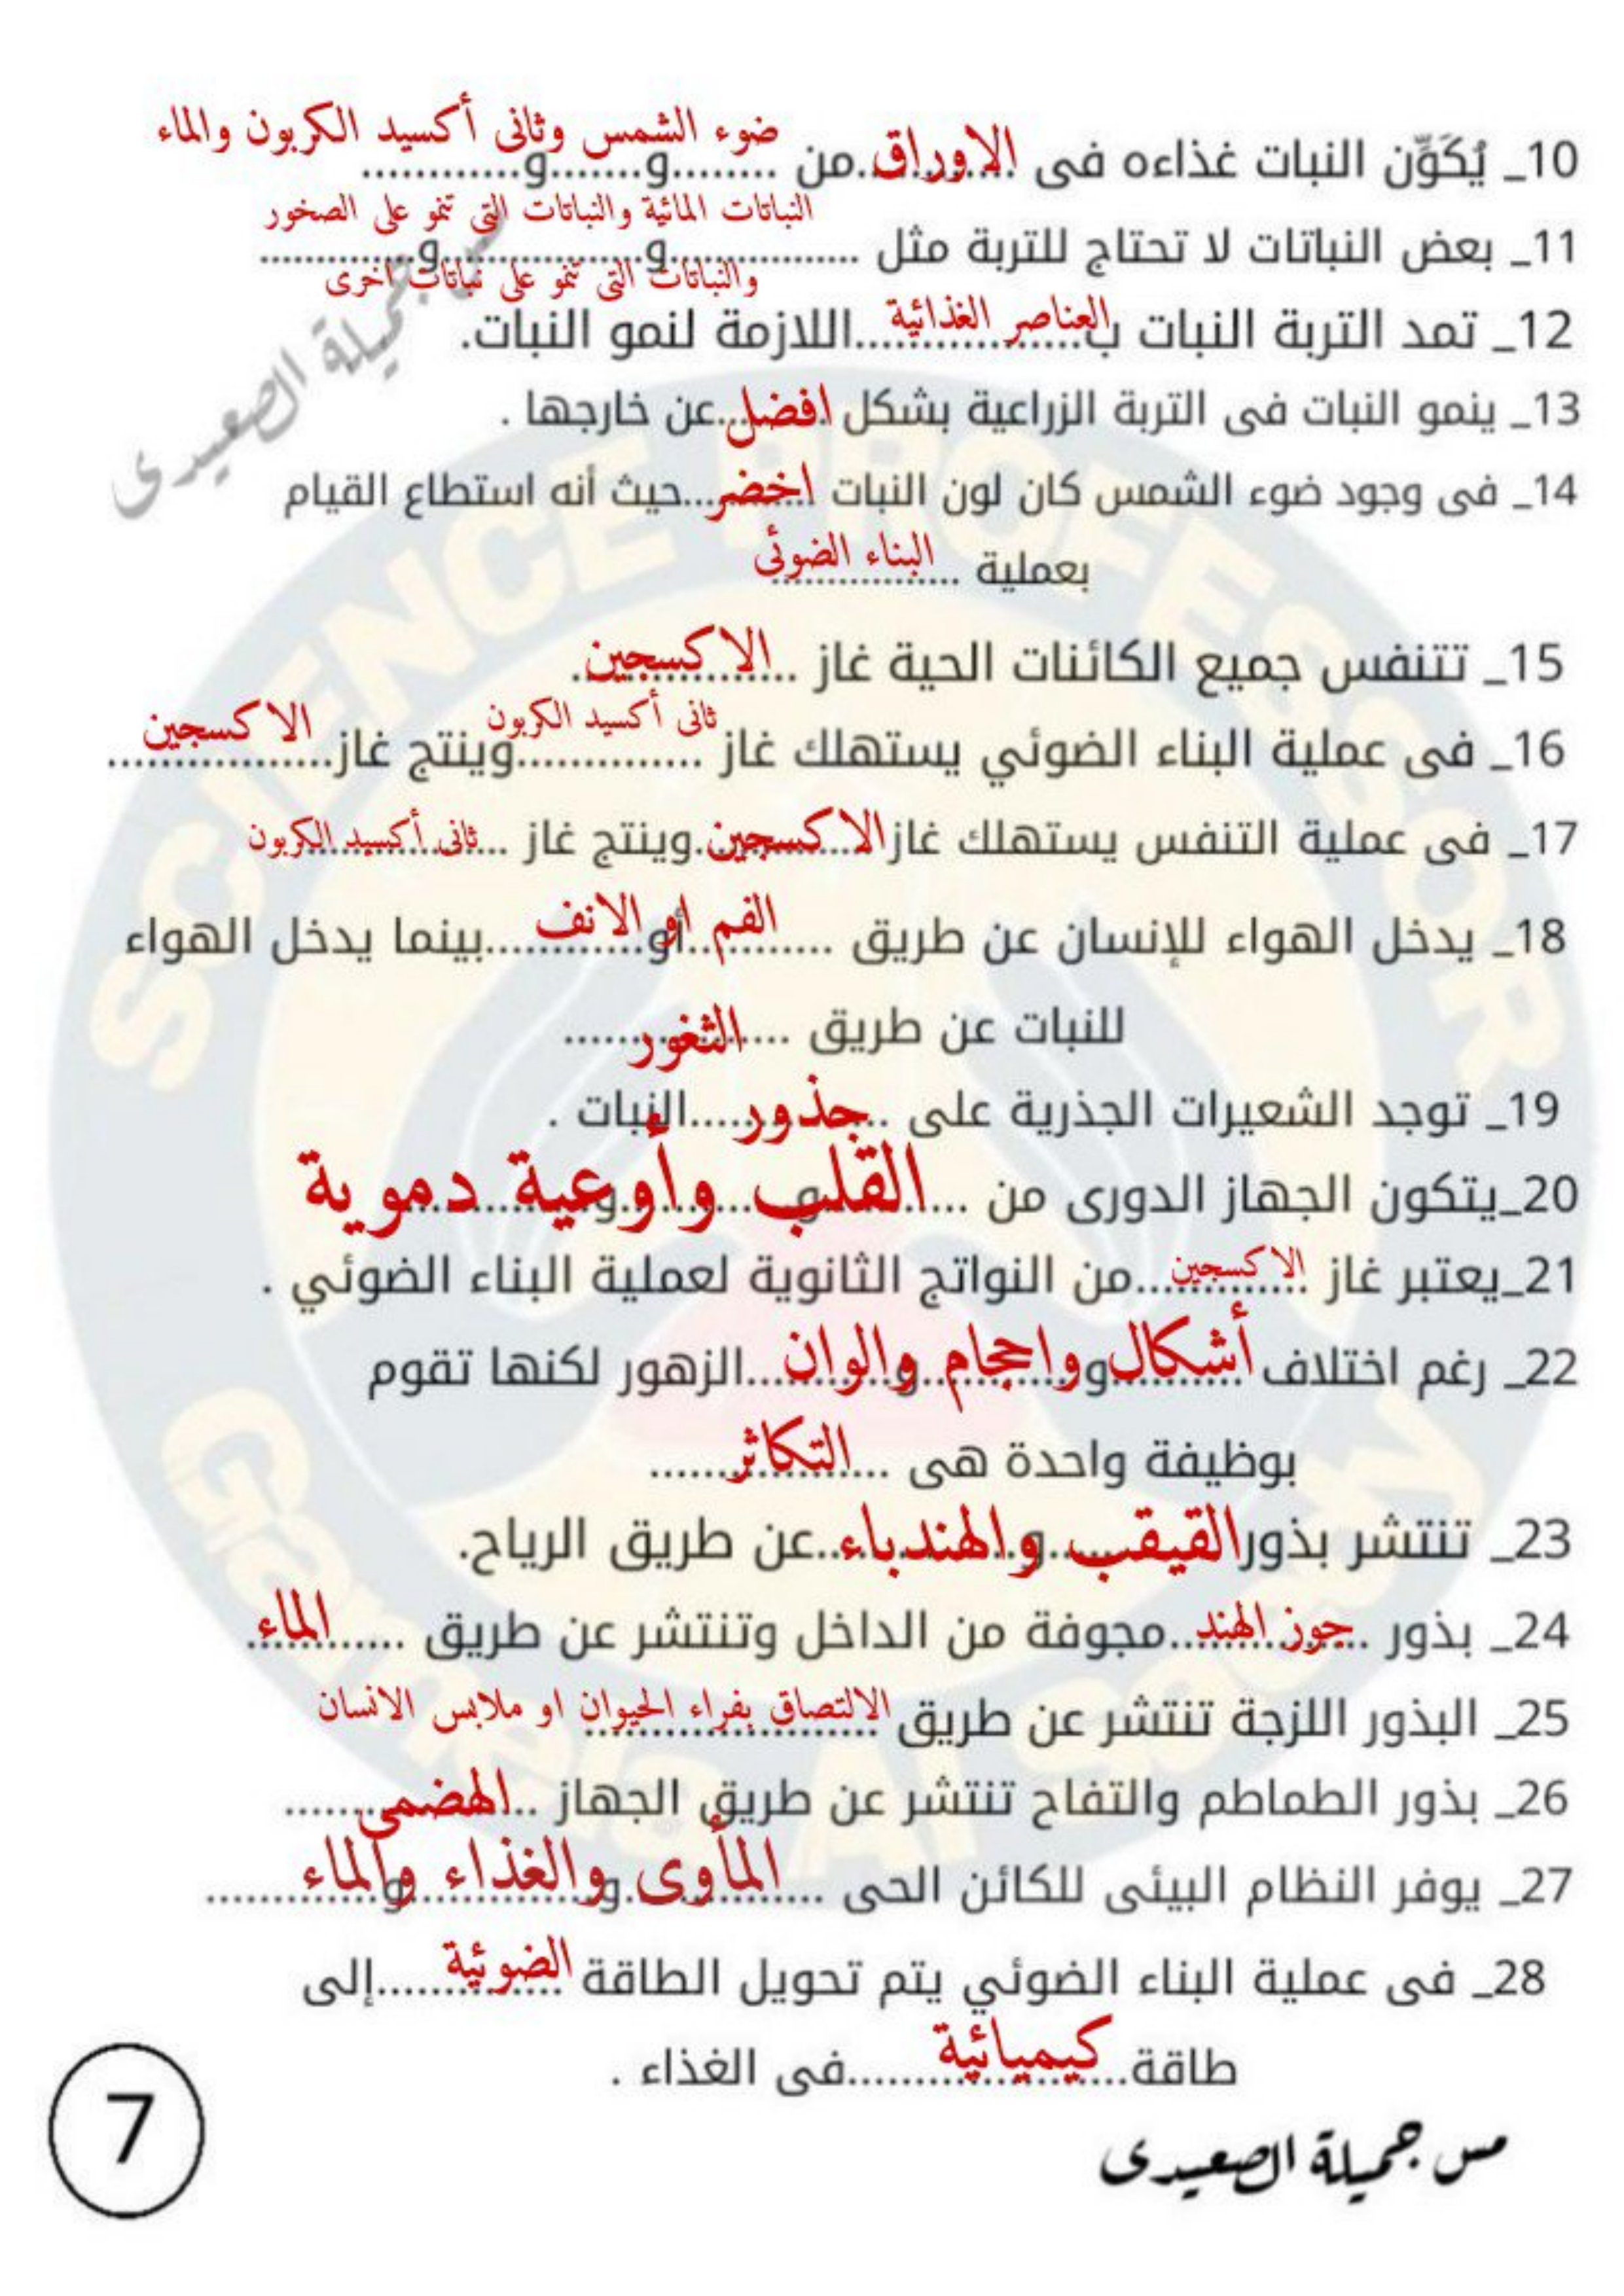 10_ يُكَوِّن النبات غذاءه فى الاوراق من ضوء الشمس وثانى أكسيد الكربون والماء
11_ بعض النباتات لا تحتاج للتربة مثل النباتات المائية والنباتات التى تنمو على الصخور
والنباتات التى تنمو على نباتات اخرى
12_ تمد التربة النبات بالعناصر الغذائية اللازمة لنمو النبات.
13_ ينمو النبات فى التربة الزراعية بشكل افضل عن خارجها .
14_ فى وجود ضوء الشمس كان لون النبات اخضر حيث أنه استطاع القيام
بعملية البناء الضوئى
15_ تتنفس جميع الكائنات الحية غاز الاكسجين.
16_ فى عملية البناء الضوئي يستهلك غاز ثانى أكسيد الكربون وينتج غاز الاكسجين
17_ فى عملية التنفس يستهلك غاز الاكسجين وينتج غاز ثانى أكسيد الكربون
18_ يدخل الهواء للإنسان عن طريق الفم او الانف بينما يدخل الهواء
للنبات عن طريق الثغور
19_ توجد الشعيرات الجذرية على جذور النبات .
20_يتكون الجهاز الدورى من القلب وأوعية دموية
21_يعتبر غاز الاكسجين من النواتج الثانوية لعملية البناء الضوئي .
22_ رغم اختلاف أشكال واحجام والوان الزهور لكنها تقوم
بوظيفة واحدة هى التكاثر
23_ تنتشر بذور القيقب والهندباء عن طريق الرياح.
24_ بذور جوز الهند مجوفة من الداخل وتنتشر عن طريق الماء.
25_ البذور اللزجة تنتشر عن طريق الالتصاق بفراء الحيوان او ملابس الانسان
26_ بذور الطماطم والتفاح تنتشر عن طريق الجهاز الهضمى
27_ يوفر النظام البيئى للكائن الحى المأوى والغذاء والماء
28_ فى عملية البناء الضوئي يتم تحويل الطاقة الضوئية إلى
طاقة كيميائية فى الغذاء .
7
مس جميلة الصعيدى
مس جميلة الصعيدى
SCIENCE PROFESSOR